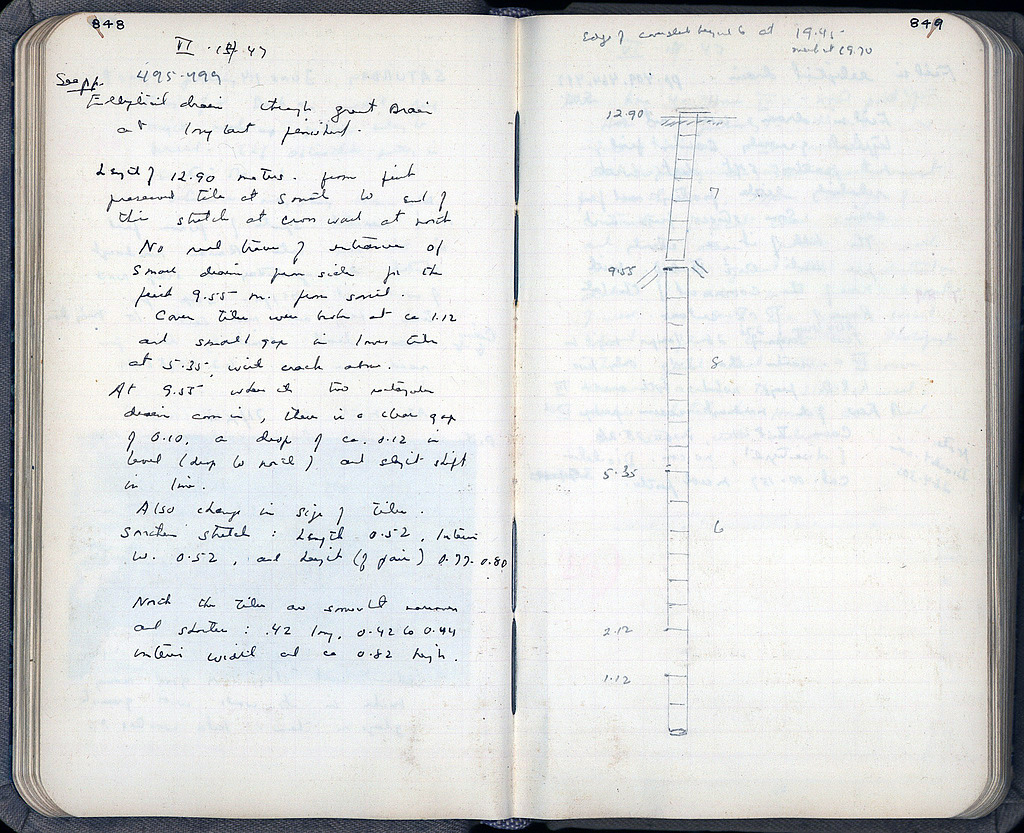 848
VI · 17 · 47
See pp. 495-499
Elliptical drain through great Drain
at long last finished.
Length of 12.90 meters. from first
preserved tile at South to end of
this stretch at cross wall at north
No real trace of entrance of
small drain from side for the
first 9.55 m. from south.
Cover tiles were broken at ca 1.12
and small gap in lower tile
at 5.35, with crack above.
At 9.55 where the two rectangular
drains come in, there is a clear gap
of 0.10, a drop of ca. 0.12 in
level (drop to north) and slight shift
in line.
Also change in size of tiles.
Southern stretch: Length 0.52, Interior
w. 0.52, and height (of pair) 0.77-0.80
North the tiles are somewhat narrower
and shorter: .42 long, 0.42 to 0.44
interior width and ca 0.82 high.
849
Edge of at 19.45
19.70
12.90
7
9.55
8
5.35
6
2.12
1.12